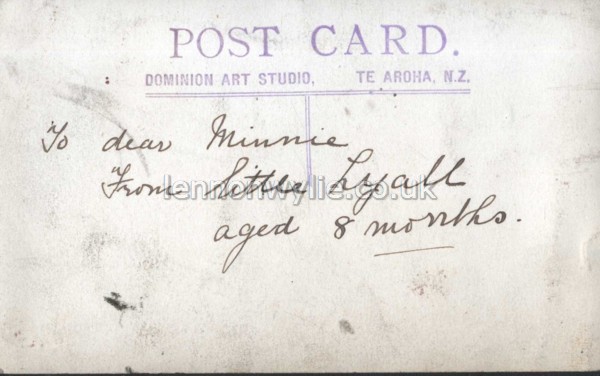 POST CARD.
DOMINION ART STUDIO, TE AROHA, N.Z.
To dear Minnie
From little Lyall
lennonwylie.co.uk
aged 8 months.